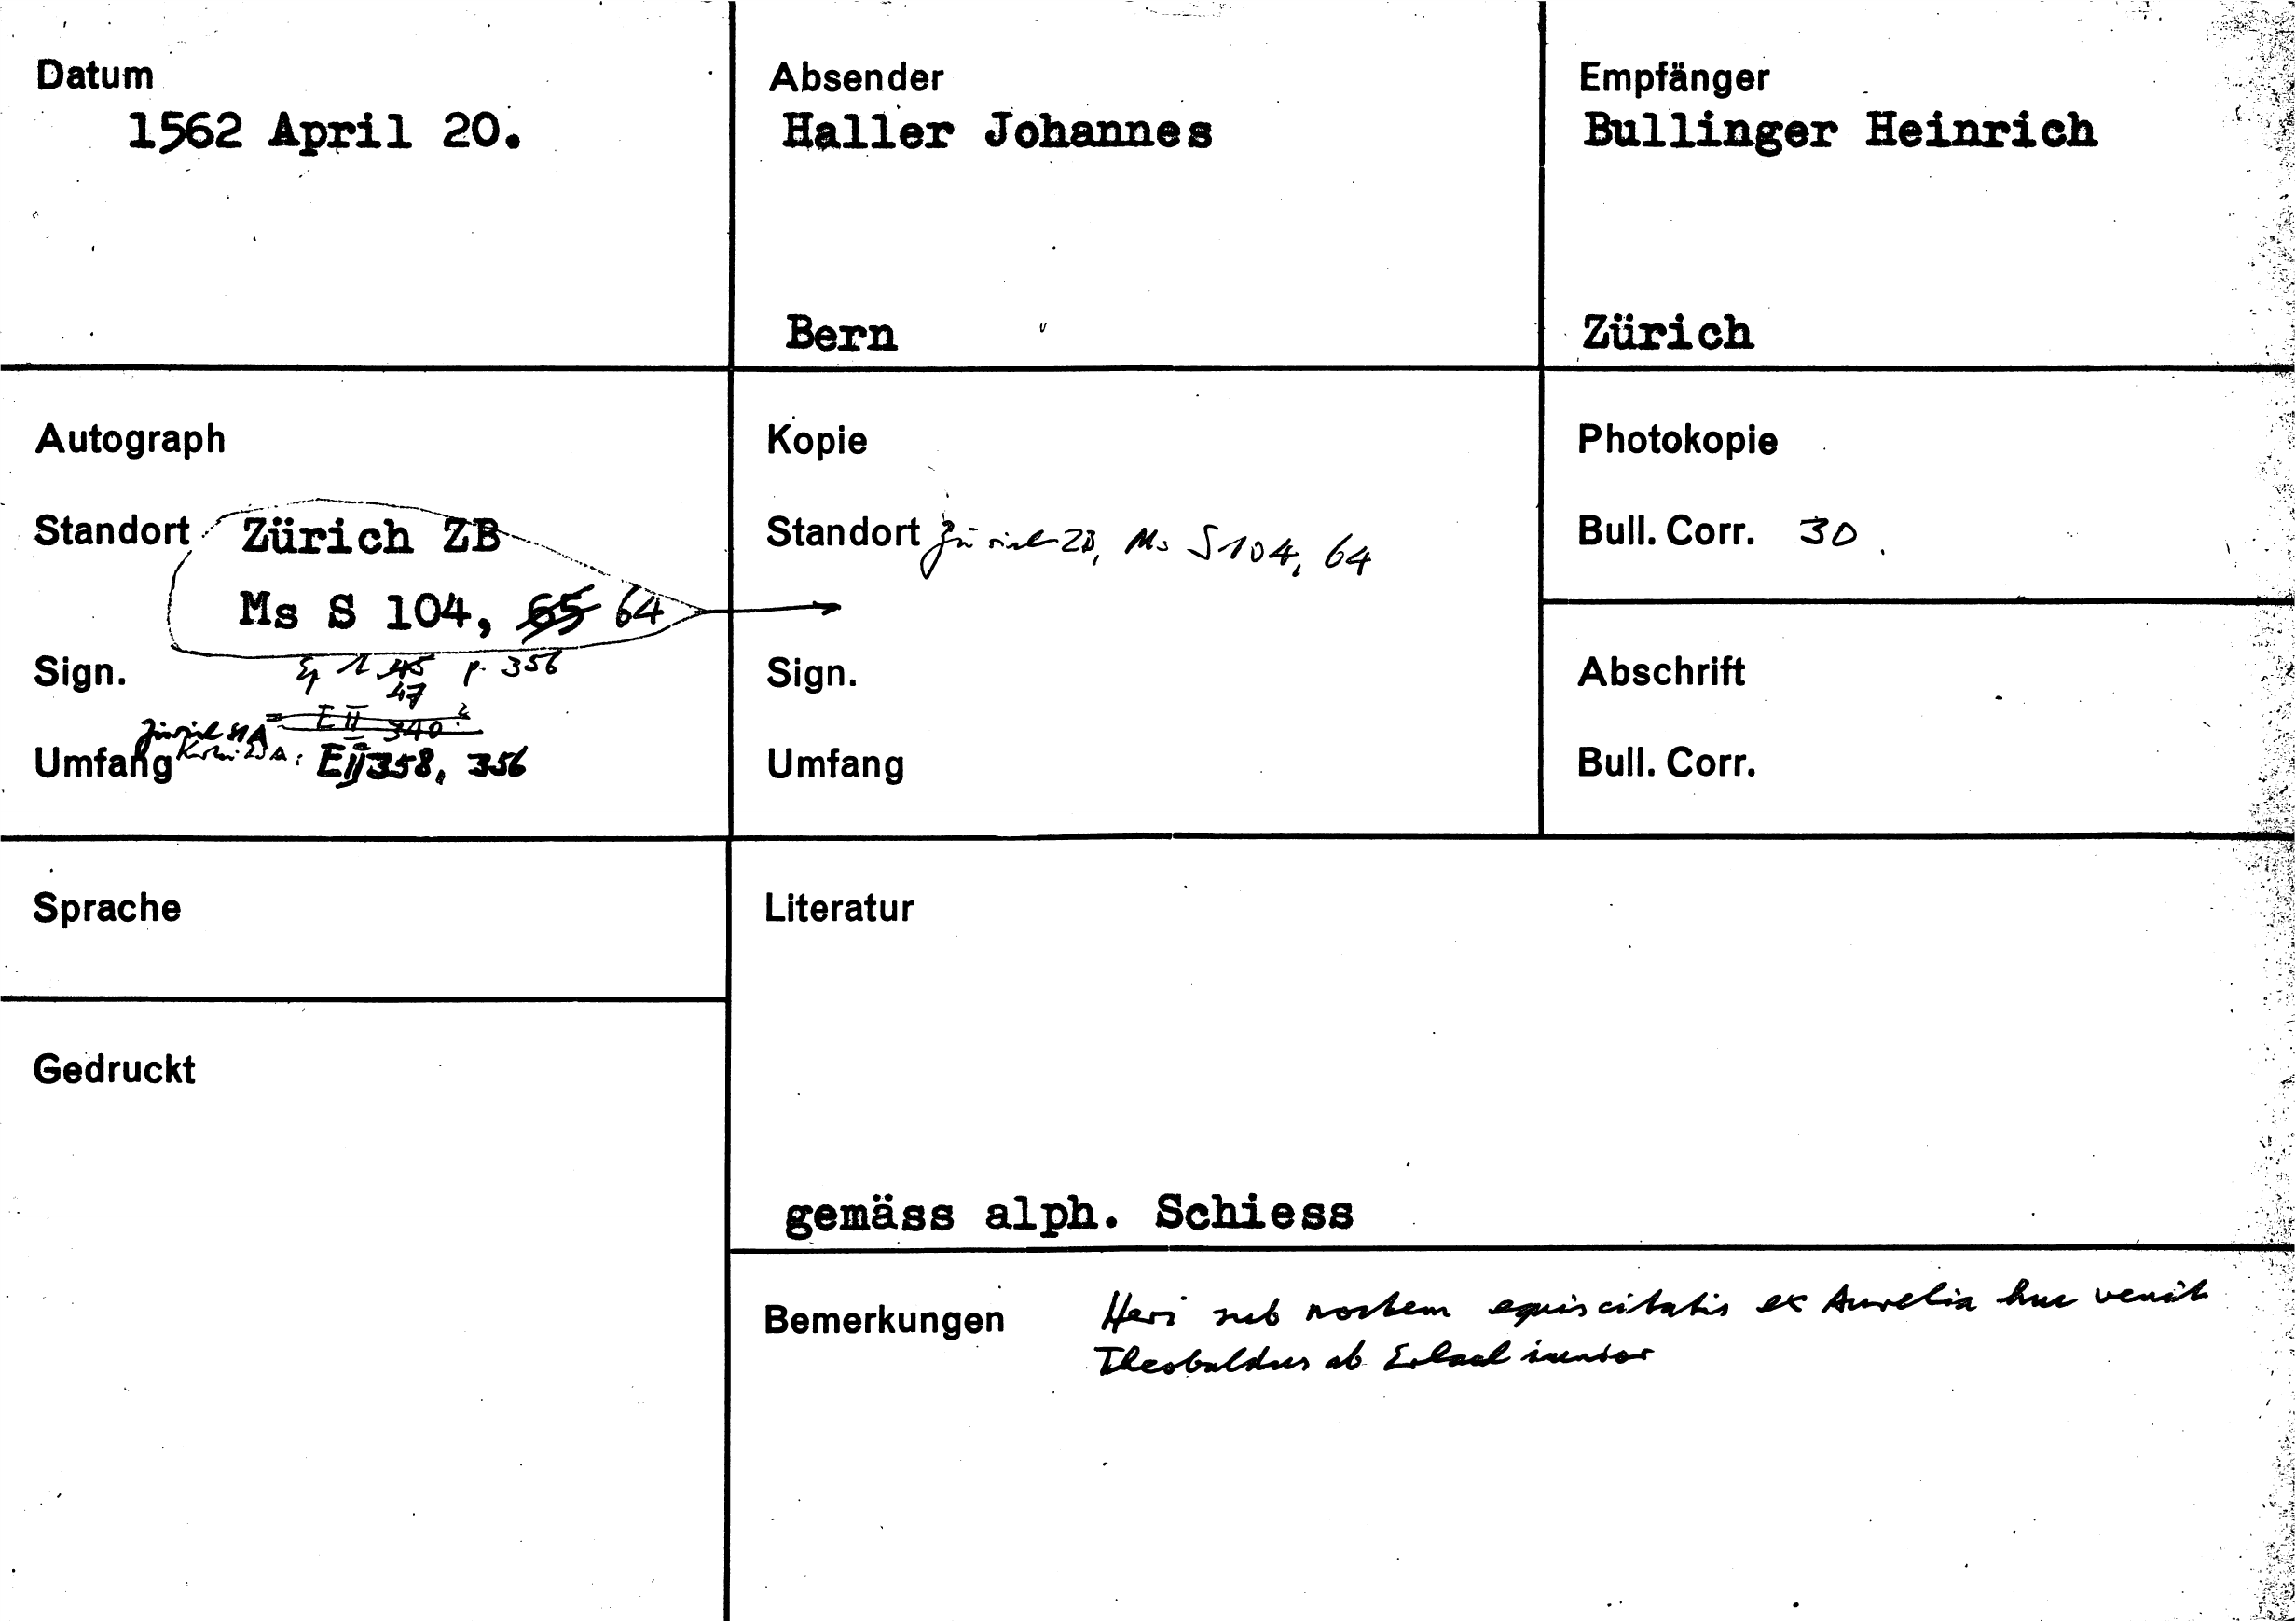 Datum
1562 April 20.
Absender
Haller Johannes
Bern
Empfänger
Bullinger Heinrich
Zürich
Autograph
Standort Zürich ZB
Ms S 104, 65 64
Sign. 1 45 p. 356
47
E II 340?
Zürich StA
Umfang E II 358, 356
Kopie
Standort Zürich ZB, Ms S 104, 64
Sign.
Umfang
Photokopie
Bull. Corr. 30
Abschrift
Bull. Corr.
Sprache
Gedruckt
Literatur
gemäss alph. Schiess
Bemerkungen Heri sub noctem equis citatis ex Aurelia huc venit
Theobaldus ab Erlach iunior